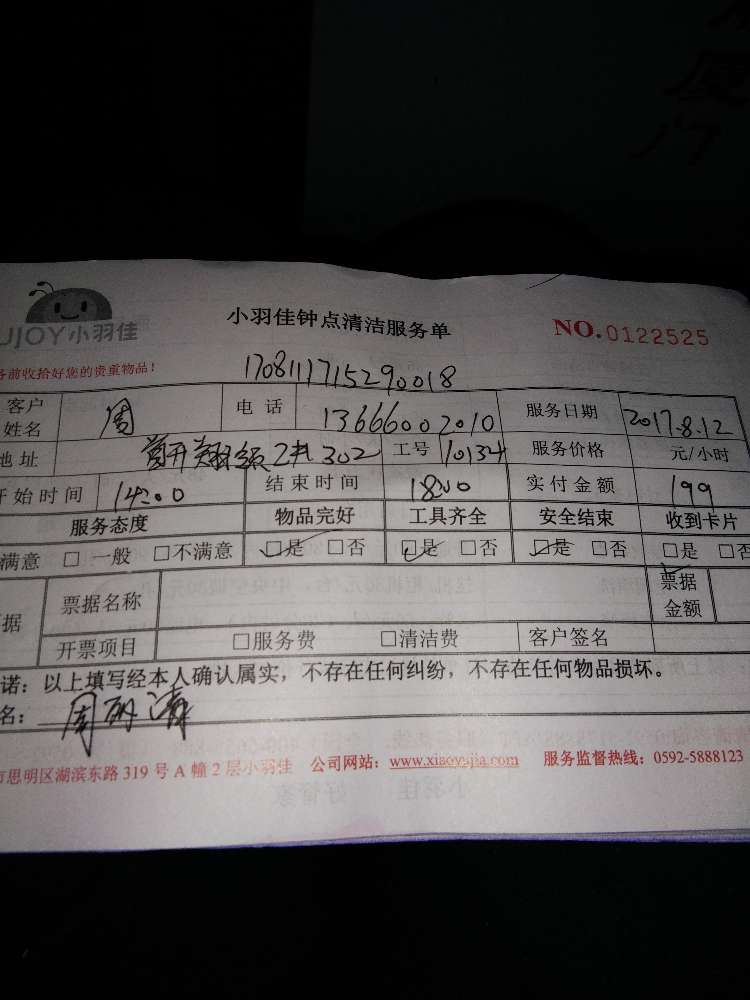 UJOY小羽佳
小羽佳钟点清洁服务单
NO.0122525
务前收拾好您的贵重物品！
1708111715290018
客户姓名 周 电话 13666002010 服务日期 2017.8.12
地址 302 工号 10134 服务价格 元/小时
开始时间 14:00 结束时间 18:00 实付金额 199
服务态度 物品完好 工具齐全 安全结束 收到卡片
满意 □一般 □不满意 □是 □否 □是 □否 □是 □否 □是 □否
据 票据名称 票据金额
开票项目 □服务费 □清洁费 客户签名
诺：以上填写经本人确认属实，不存在任何纠纷，不存在任何物品损坏。
名：周
市思明区湖滨东路 319 号 A 幢 2 层小羽佳 公司网站：www.xiaoyujia.com 服务监督热线：0592-5888123